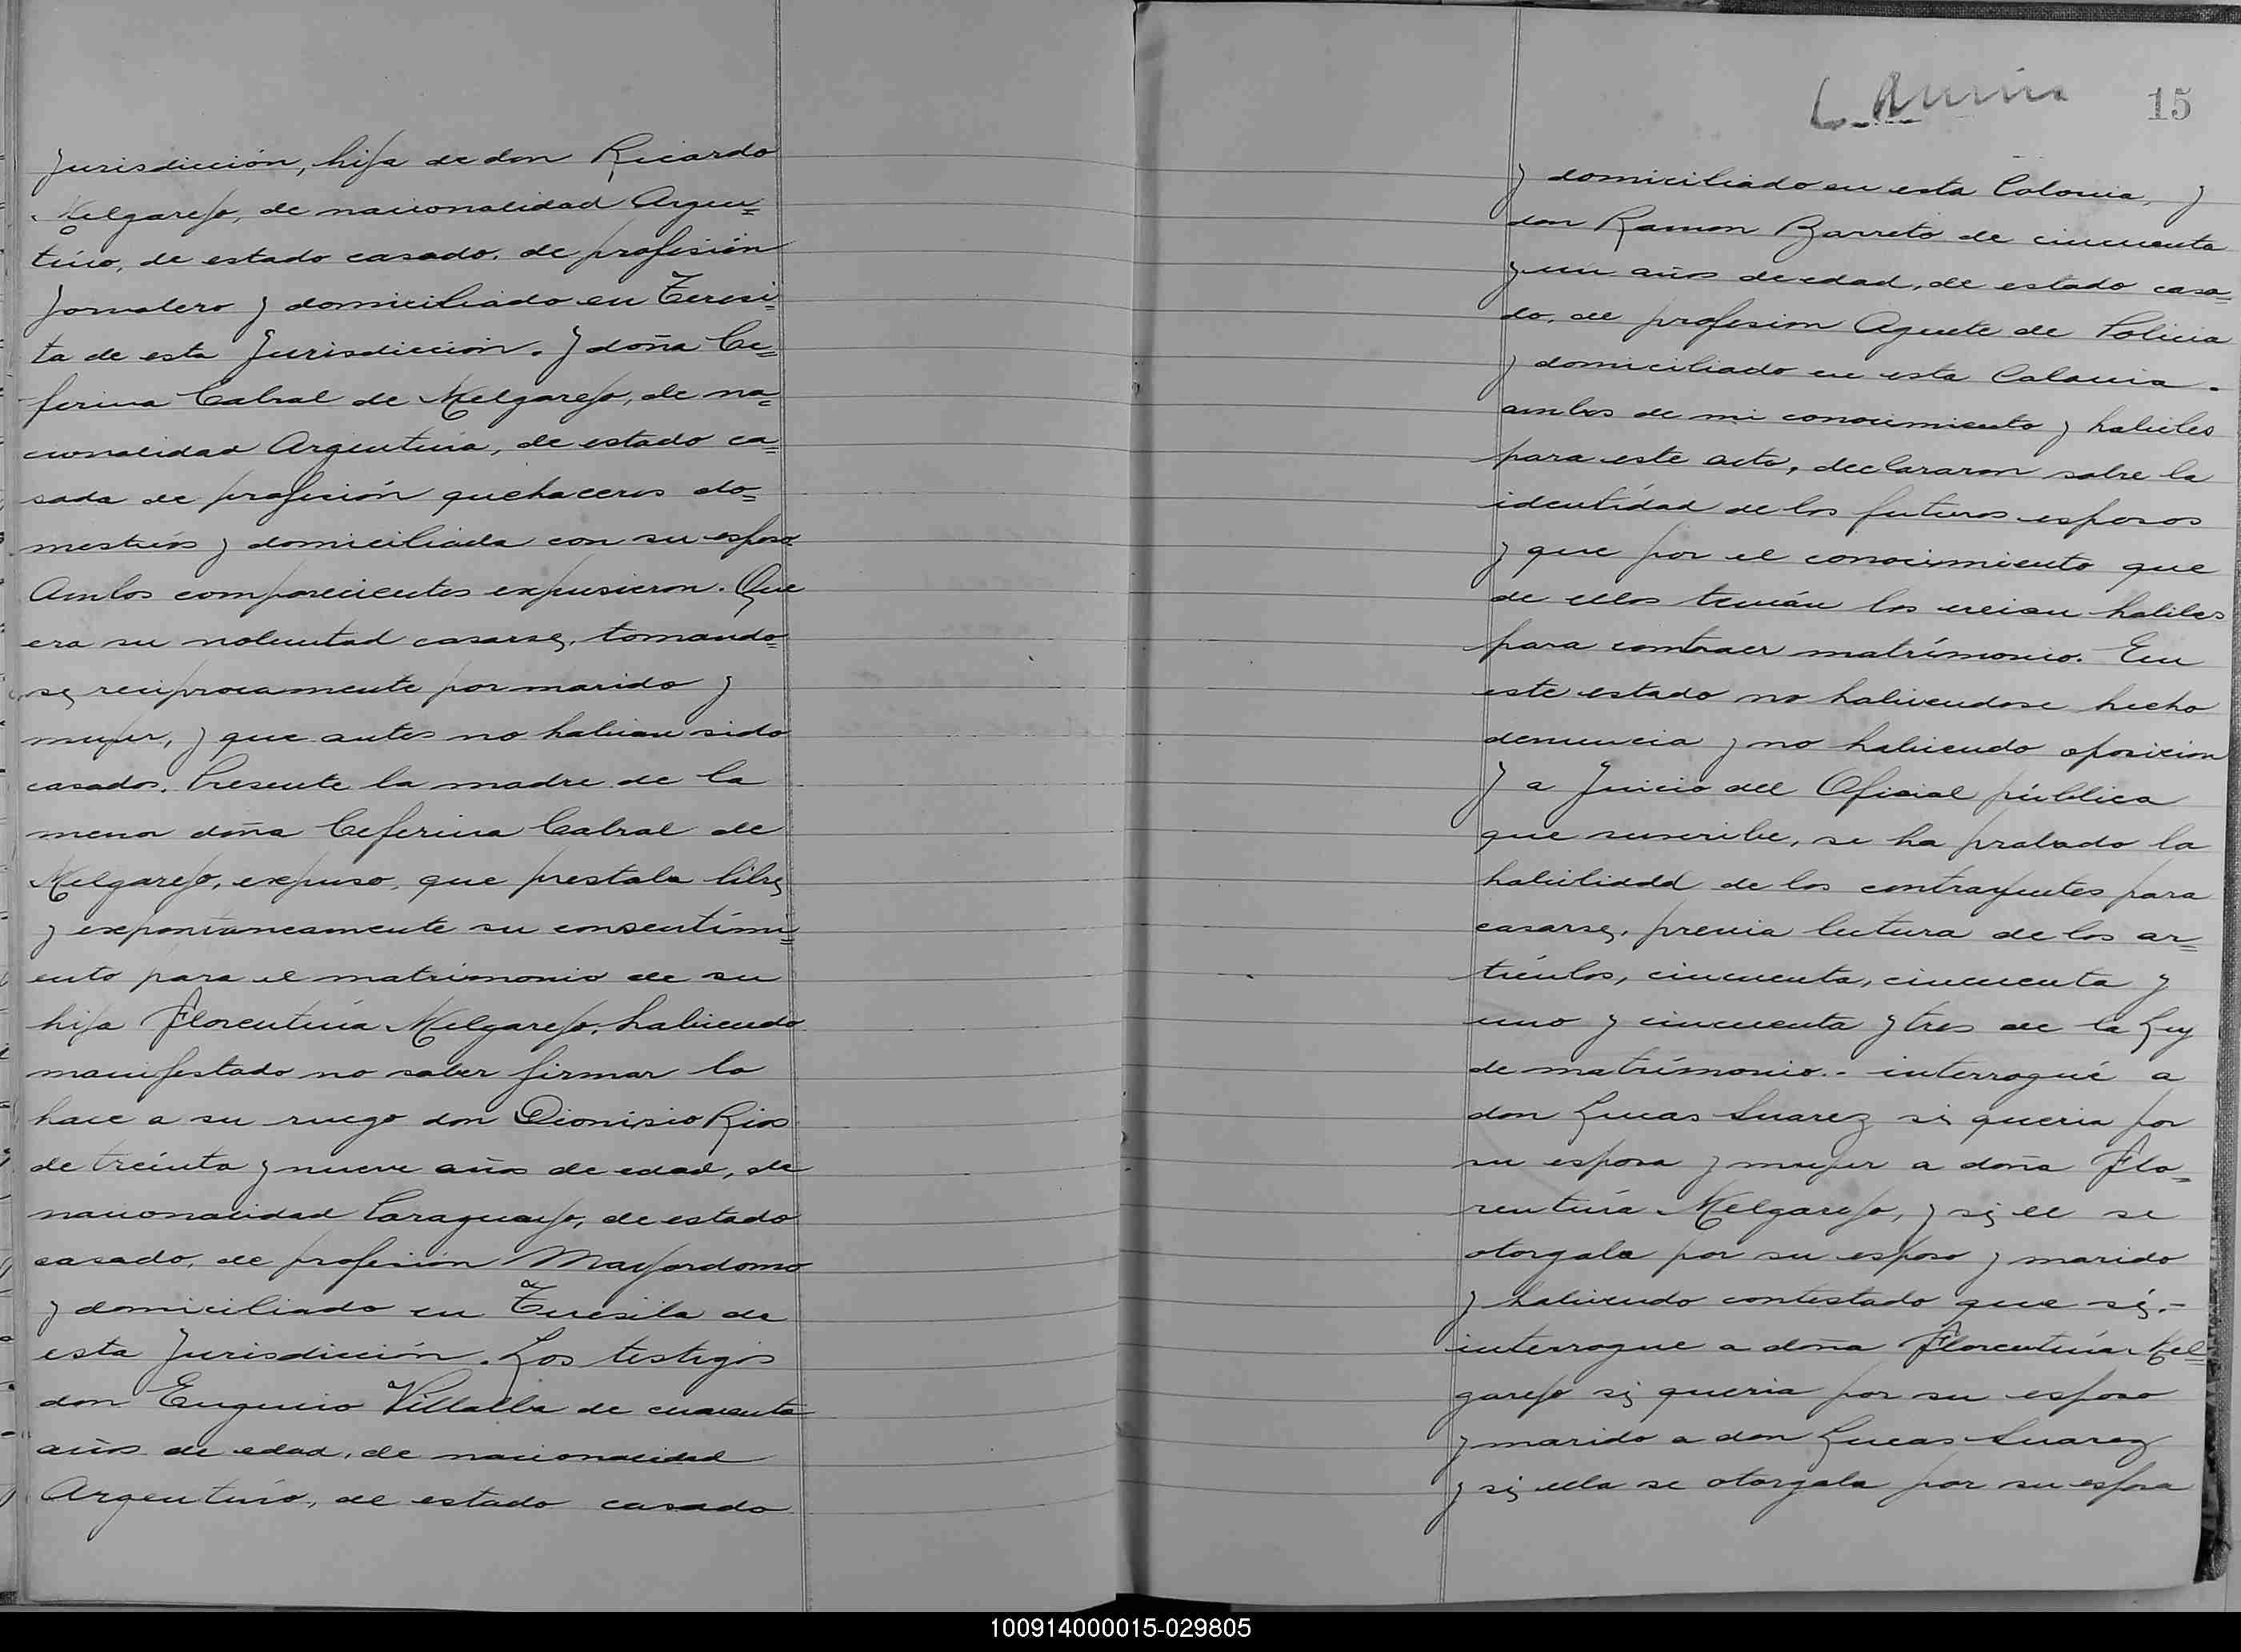 Jurisdicción, hija de don Ricardo
Melgarejo, de nacionalidad Argen=
tino, de estado casado, de profesión
Jornalero y domiciliado en Teresi=
ta de esta Jurisdicción. Y doña Ce=
ferina Cabral de Melgarejo, de na=
cionalidad Argentina, de estado ca=
sada de profesión quehaceres do=
mesticos y domiciliada con su esposo
Ambos comparecientes expusieron. Que
era su voluntad casarse, tomando=
se, reciprocamente por marido y
mujer, y que antes no habian sido
casados. Presente la madre de la
menor doña Ceferina Cabral de
Melgarejo, expuso, que prestaba libre
y expontaneamente su consentimi=
ento para el matrimonio de su
hija Florentina Melgarejo, habiendo
manifestado no saber firmar lo
hace a su ruego don Dionisio Rios
de treinta y nueve años de edad, de
nacionalidad Paraguayo, de estado
casado, de profesión Mayordomo
y domiciliado en Teresita de
esta Jurisdicción. Los testigos
don Eugenio Villalba de cuarenta
años de edad, de nacionalidad
Argentino, de estado casado
15
y domiciliado en esta Colonia, y
don Ramon Barreto de cincuenta
y un años de edad, de estado casa=
do, de profesion Agente de Policia
y domiciliado en esta Colonia.
ambos de mi conocimiento y habiles
para este acto, declararon sobre la
identidad de los futuros esposos
y que por el conocimiento que
de ellos tenián los creian habiles
para contraer matrimonio. En
este estado no habiendose hecho
denuncia y no habiendo oposicion
y a Juicio del Oficial pública
que suscribe, se ha probado la
habilidad de los contrayentes para
casarse, previa lectura de los ar=
ticulos, cincuenta, cincuenta y
uno y cincuenta y tres de la Ley
de matrimonio.- interrogué a
don Lucas Suarez si queria por
su esposa y mujer a doña Flo=
rentina Melgarejo, y si el se
otorgaba por su esposo y marido
y habiendo contestado que si.-
interrogue a doña Florentina Mel=
garejo si queria por su esposo
y marido a don Lucas Suarez
y si ella se otorgaba por su esposa
100914000015-029805